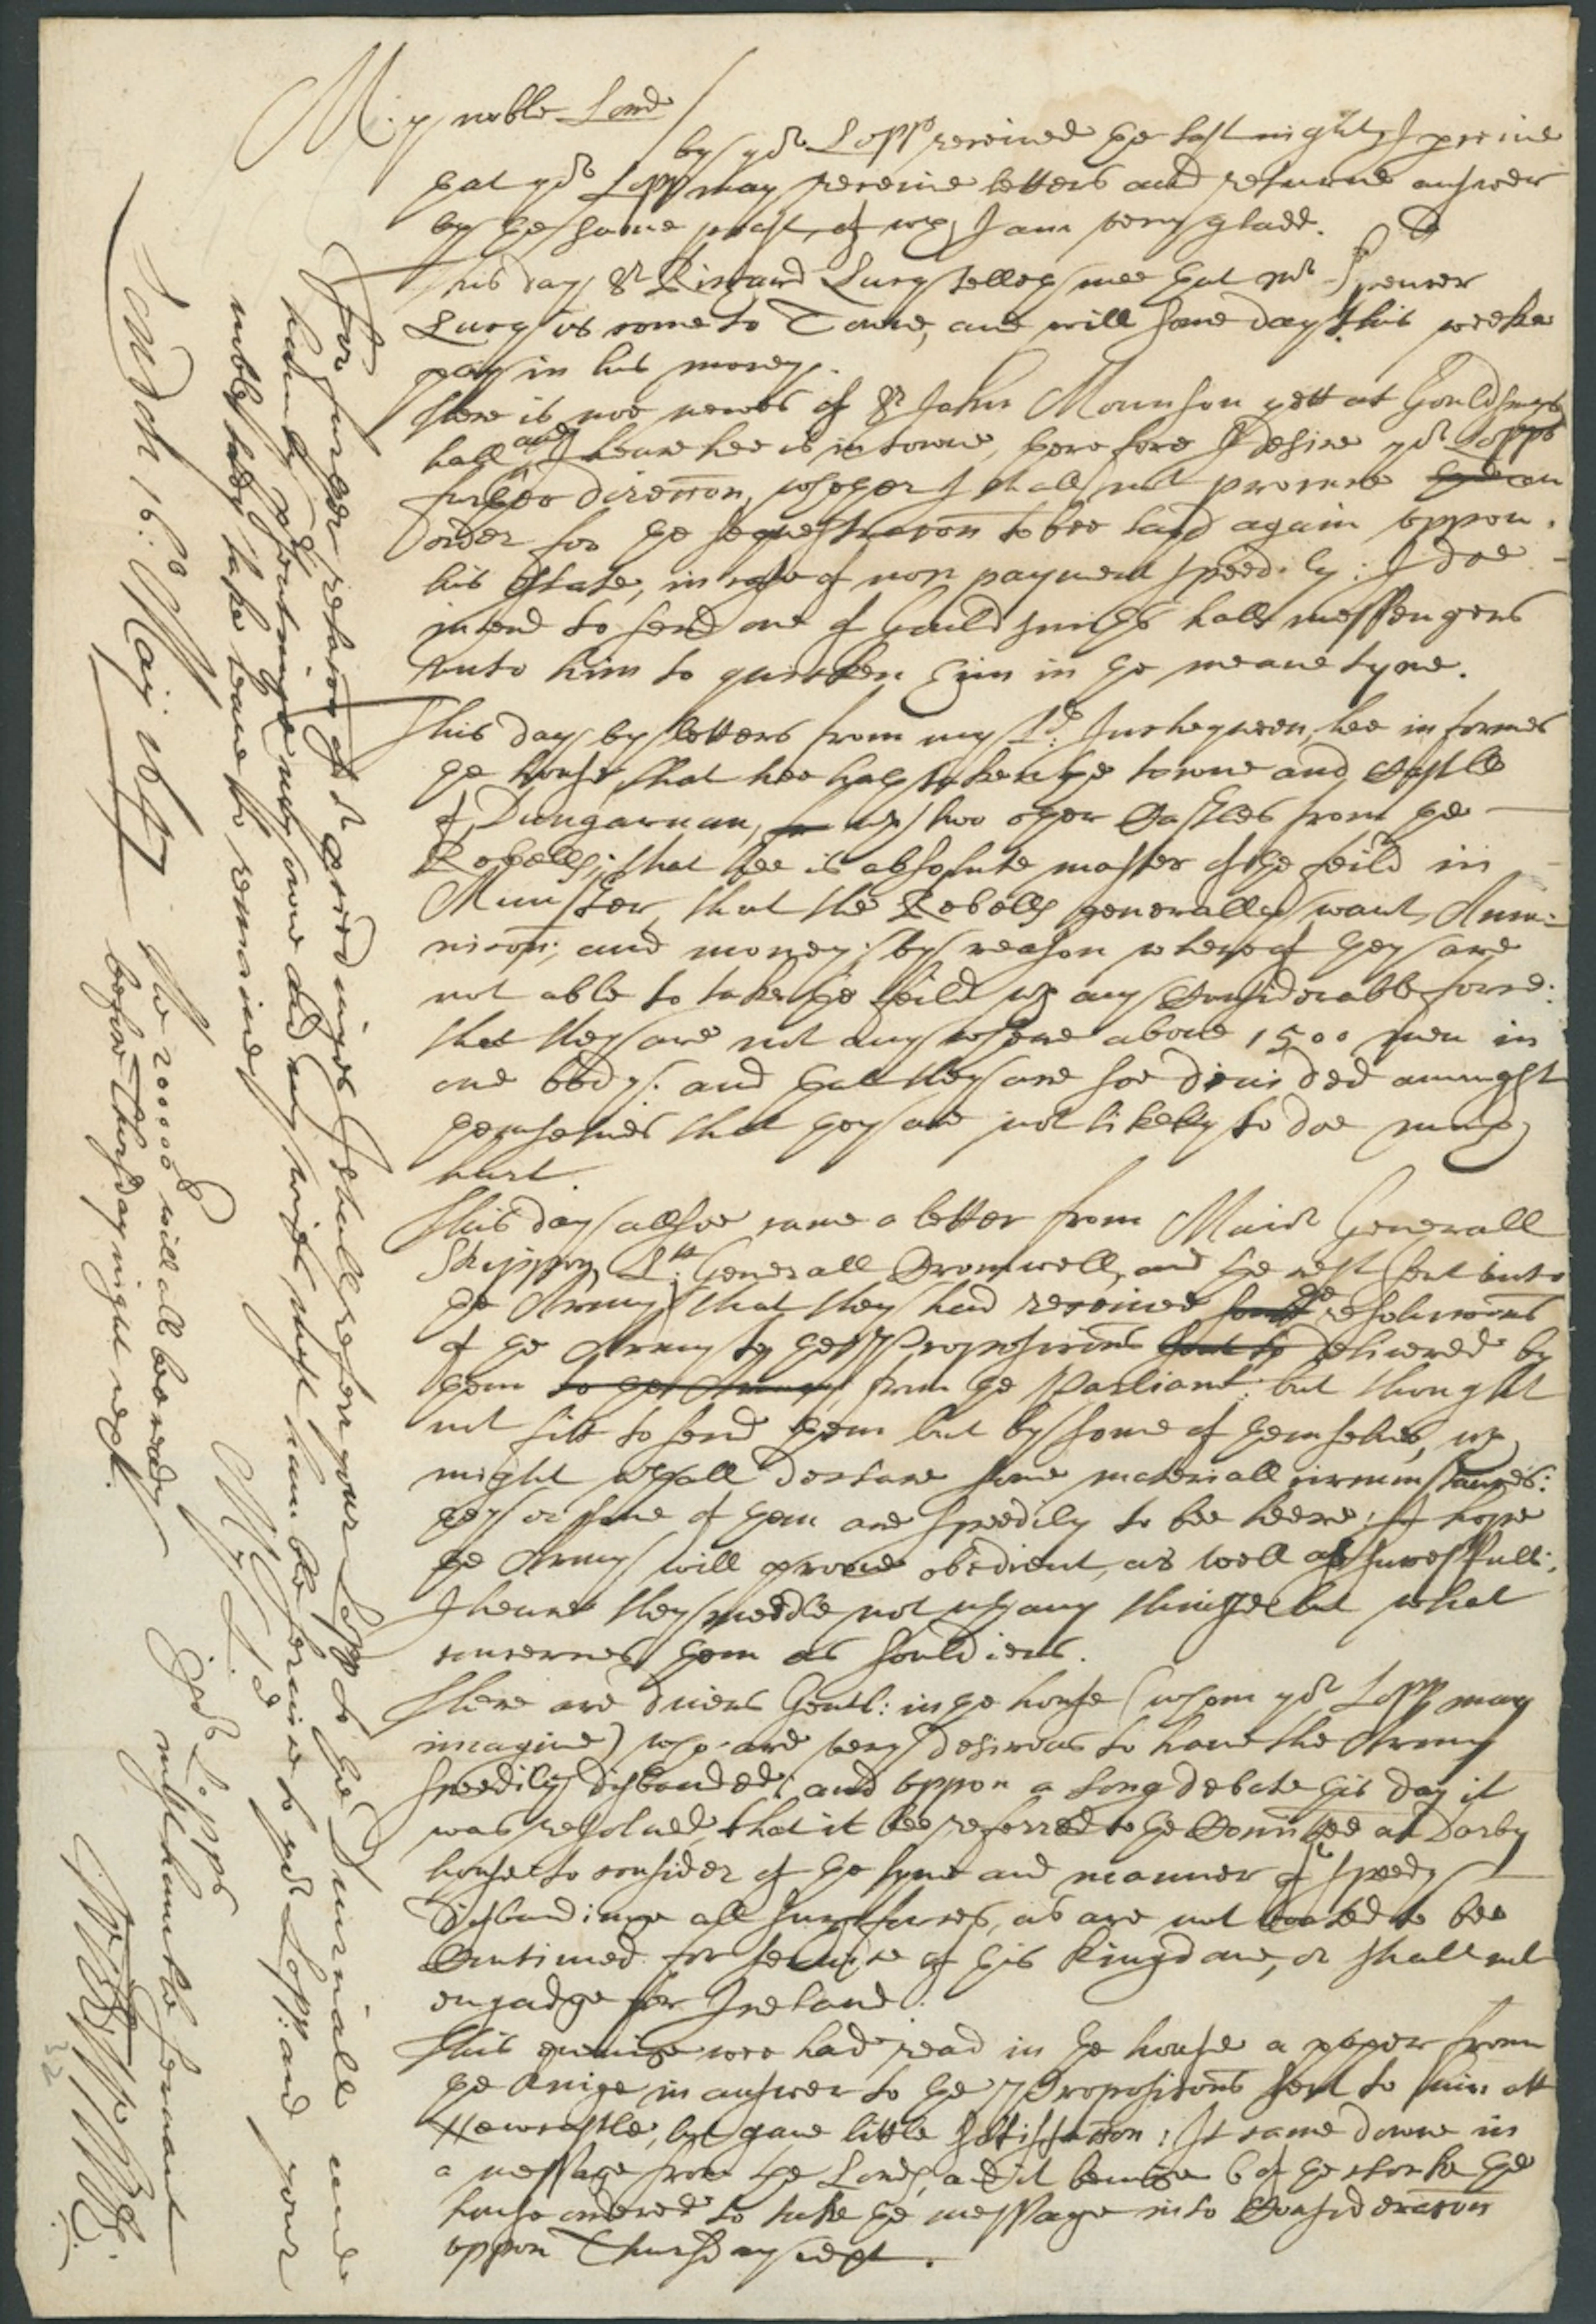 My noble Lord /
by yor Lopps received ye last night, I perceive
yat yor Lopp may receive letters and returne answer
by ye same post, of wch I am very gladd.
This day Sr Richard Lucy telleth mee yat Mr Spencer
Lucy is come to Towne, and will some day this weeke
pay in his money.
There is noe newes of Sr John Mounson yett at Gouldsmyths
hall, and I heare hee is in towne, yerefore I desire yor Lopps
further direccon, whether I shall not procure an
order for ye sequestracon to bee layd again uppon
his Estate, in case of non payment speedily: I doe
intend to send one of Gouldsmiths hall messengers
unto him to quicken him in ye meane tyme.
This day by letters from my Ld: Inchequeen, hee informes
ye house, that hee hath taken ye towne and Castle
of Dungarvan, wth two oyer Castles from ye
Rebells; that hee is absolute master of ye feild in
Munster, that the Rebells generally want Amu=
nicon; and money; by reason whereof yey are
not able to take ye feild wth any Considerable force:
that they are not any where above 1500 men in
one body: and yat they are soe devided amongst
yemselves that yey are not likely to doe much
hurt.
This day allsoe came a letter from Maior Generall
Skippon, Ltt: Generall Cromwell, and ye rest sent into
ye Army, that they had received ye resolucons
of ye Army to ye Proposicons delivered by
yem from ye Parliamt: but thought
not fitt to send yem but by some of yemselves, wch
might wthall declare some materiall circumstances:
yey or some of yem are speedily to bee heere; I hope
ye Army will prove obedient, as well as successfull:
I heare they meddle not wth any thinge but what
concernes yem as Souldiers.
There are divers Gentl: in ye house (whom yor Lopp may
imagine) who are very desirous to have the Army
speedily disbanded; and uppon a long debate this day it
was resolved, that it bee referred to ye Comittee at Darby
house to consider of ye tyme and manner of speedy
disbandinge all such forces, as are not voated to bee
Continued for service of this Kingdome, or shall not
engadge for Ireland.
This eveninge wee had read in ye house a paper from
ye Kinge in answer to ye Proposicons sent to him att
Newcastle, but gave little satisfaccon: It came downe in
a message from ye Lords, and it beinge 6 of ye clocke ye
house ordered to take ye message into Consideracon
uppon Thursday next.
For further relacon of or proceedinges I shall referr your Lopp to ye Diurnall and
noble lady take leave to remaine
My Ld
Yor Lopps
most humble servant
London 16: May 1647
The 20000l will all bee ready
before Thursday night next.
23